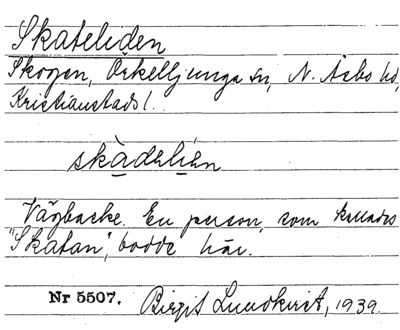 Skateliden
Skogen, Örkelljunga sn, N. Åsbo hd,
Kristianstads l.
skàdəlíən
Vägbacke. En person, som kallades
"Skatan", bodde här.
Nr 5507. Birgit Lundkvist, 1939.